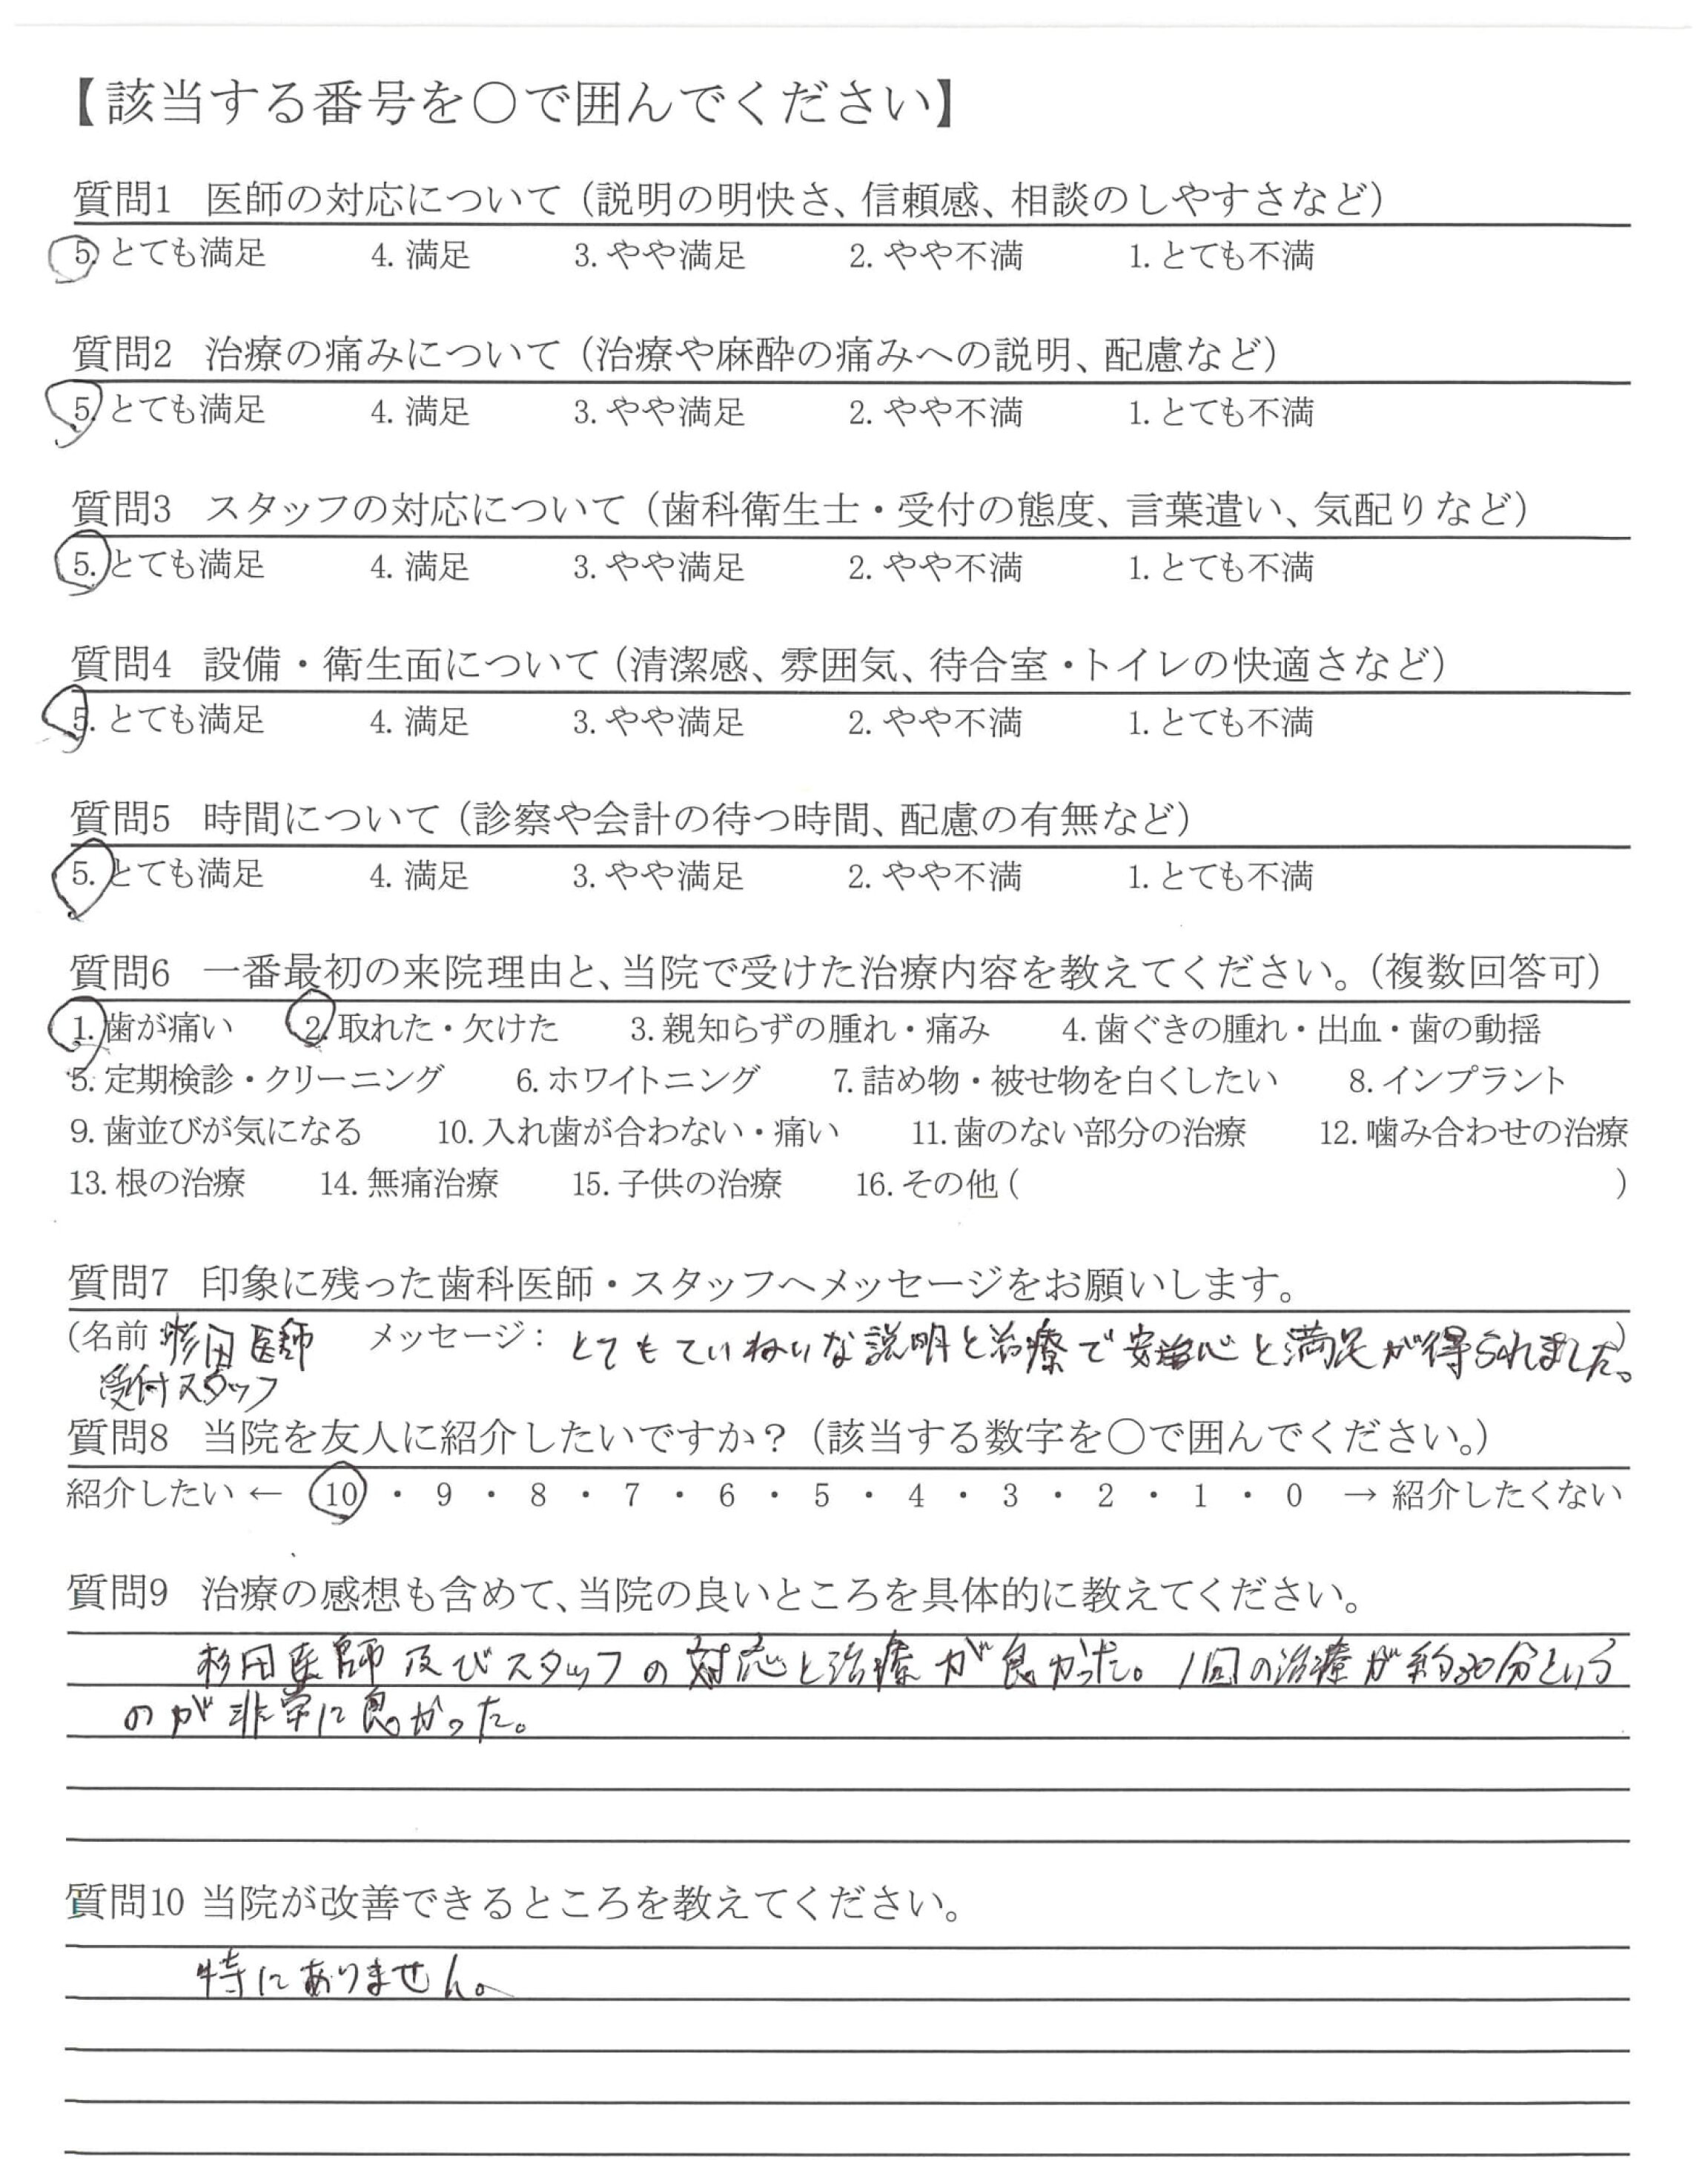 【該当する番号を○で囲んでください】
質問1 医師の対応について（説明の明快さ、信頼感、相談のしやすさなど）
5. とても満足 4. 満足 3. やや満足 2. やや不満 1. とても不満
質問2 治療の痛みについて（治療や麻酔の痛みへの説明、配慮など）
5. とても満足 4. 満足 3. やや満足 2. やや不満 1. とても不満
質問3 スタッフの対応について（歯科衛生士・受付の態度、言葉遣い、気配りなど）
5. とても満足 4. 満足 3. やや満足 2. やや不満 1. とても不満
質問4 設備・衛生面について（清潔感、雰囲気、待合室・トイレの快適さなど）
5. とても満足 4. 満足 3. やや満足 2. やや不満 1. とても不満
質問5 時間について（診察や会計の待つ時間、配慮の有無など）
5. とても満足 4. 満足 3. やや満足 2. やや不満 1. とても不満
質問6 一番最初の来院理由と、当院で受けた治療内容を教えてください。（複数回答可）
1. 歯が痛い 2. 取れた・欠けた 3. 親知らずの腫れ・痛み 4. 歯ぐきの腫れ・出血・歯の動揺
5. 定期検診・クリーニング 6. ホワイトニング 7. 詰め物・被せ物を白くしたい 8. インプラント
9. 歯並びが気になる 10. 入れ歯が合わない・痛い 11. 歯のない部分の治療 12. 噛み合わせの治療
13. 根の治療 14. 無痛治療 15. 子供の治療 16. その他 ( )
質問7 印象に残った歯科医師・スタッフへメッセージをお願いします。
(名前 杉田医師 メッセージ： とてもていねいな説明と治療で安心と満足が得られました。)
受付スタッフ
質問8 当院を友人に紹介したいですか？（該当する数字を○で囲んでください。）
紹介したい ← 10 ・ 9 ・ 8 ・ 7 ・ 6 ・ 5 ・ 4 ・ 3 ・ 2 ・ 1 ・ 0 → 紹介したくない
質問9 治療の感想も含めて、当院の良いところを具体的に教えてください。
杉田医師及びスタッフの対応と治療が良かった。1回の治療が約30分という
のが非常に良かった。
質問10 当院が改善できるところを教えてください。
特にありません。